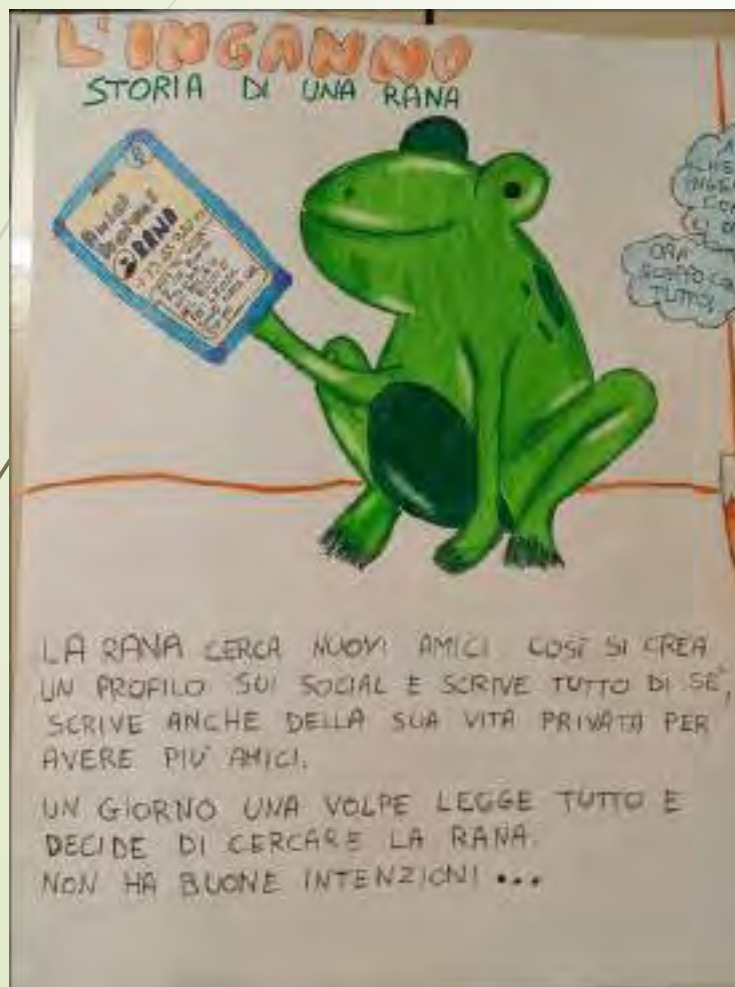 L'INGANNO
STORIA DI UNA RANA
RANA
ORA
SCAPPO CON
TUTTO!
LA RANA CERCA NUOVI AMICI COSÌ SI CREA
UN PROFILO SUI SOCIAL E SCRIVE TUTTO DI SÉ,
SCRIVE ANCHE DELLA SUA VITA PRIVATA PER
AVERE PIÙ AMICI.
UN GIORNO UNA VOLPE LEGGE TUTTO E
DECIDE DI CERCARE LA RANA.
NON HA BUONE INTENZIONI...